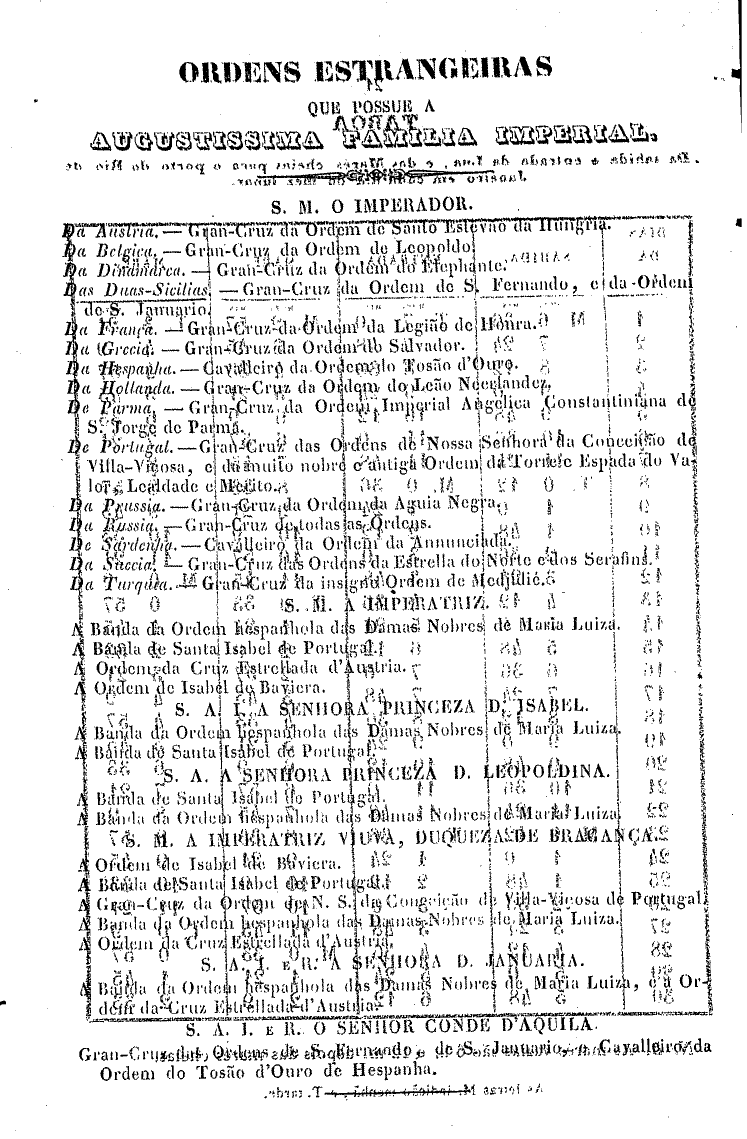 ORDENS ESTRANGEIRAS
QUE POSSUE A
AUGUSTISSIMA FAMILIA IMPERIAL.
S. M. O IMPERADOR.
Da Austria. — Gran-Cruz da Ordem de Santo Estevão da Hungria.
Da Belgica. — Gran-Cruz da Ordem de Leopoldo.
Da Dinamarca. — Gran-Cruz da Ordem do Elephante.
Das Duas-Sicilias. — Gran-Cruz da Ordem de S. Fernando, e da Ordem
de S. Januario.
Da França. — Gran-Cruz da Ordem da Legião de Honra.
Da Grecia. — Gran-Cruz da Ordem do Salvador.
Da Hespanha. — Cavalleiro da Ordem do Tosão d'Ouro.
Da Hollanda. — Gran-Cruz da Ordem do Leão Neerlandez.
De Parma. — Gran-Cruz da Ordem Imperial Angelica Constantiniana de
S. Jorge de Parma.
De Portugal. — Gran-Cruz das Ordens de Nossa Senhora da Conceição de
Villa-Viçosa, e da muito nobre e antiga Ordem da Torre e Espada do Va-
lor, Lealdade e Merito.
Da Prussia. — Gran-Cruz da Ordem da Aguia Negra.
Da Russia. — Gran-Cruz de todas as Ordens.
De Sardenha. — Cavalleiro da Ordem da Annunciada.
Da Suecia. — Gran-Cruz das Ordens da Estrella do Norte e dos Serafins.
Da Turquia. — Gran-Cruz da insigne Ordem de Medjidié.
S. M. A IMPERATRIZ.
A Banda da Ordem hespanhola das Damas Nobres de Maria Luiza.
A Banda de Santa Isabel de Portugal.
A Ordem da Cruz Estrellada d'Austria.
A Ordem de Isabel de Baviera.
S. A. I. A SENHORA PRINCEZA D. ISABEL.
A Banda da Ordem hespanhola das Damas Nobres de Maria Luiza.
A Banda de Santa Isabel de Portugal.
S. A. A SENHORA PRINCEZA D. LEOPOLDINA.
A Banda de Santa Isabel de Portugal.
A Banda da Ordem hespanhola das Damas Nobres de Maria Luiza.
S. M. A IMPERATRIZ VIUVA, DUQUEZA DE BRAGANÇA.
A Ordem de Isabel de Baviera.
A Banda de Santa Isabel de Portugal.
A Gran-Cruz da Ordem de N. S. da Conceição de Villa-Viçosa de Portugal.
A Banda da Ordem hespanhola das Damas Nobres de Maria Luiza.
A Ordem da Cruz Estrellada d'Austria.
S. A. I. E R. A SENHORA D. JANUARIA.
A Banda da Ordem hespanhola das Damas Nobres de Maria Luiza, e a Or-
dem da Cruz Estrellada d'Austria.
S. A. I. E R. O SENHOR CONDE D'AQUILA.
Gran-Cruz das Ordens de S. Fernando, de S. Januario, e Cavalleiro da
Ordem do Tosão d'Ouro de Hespanha.